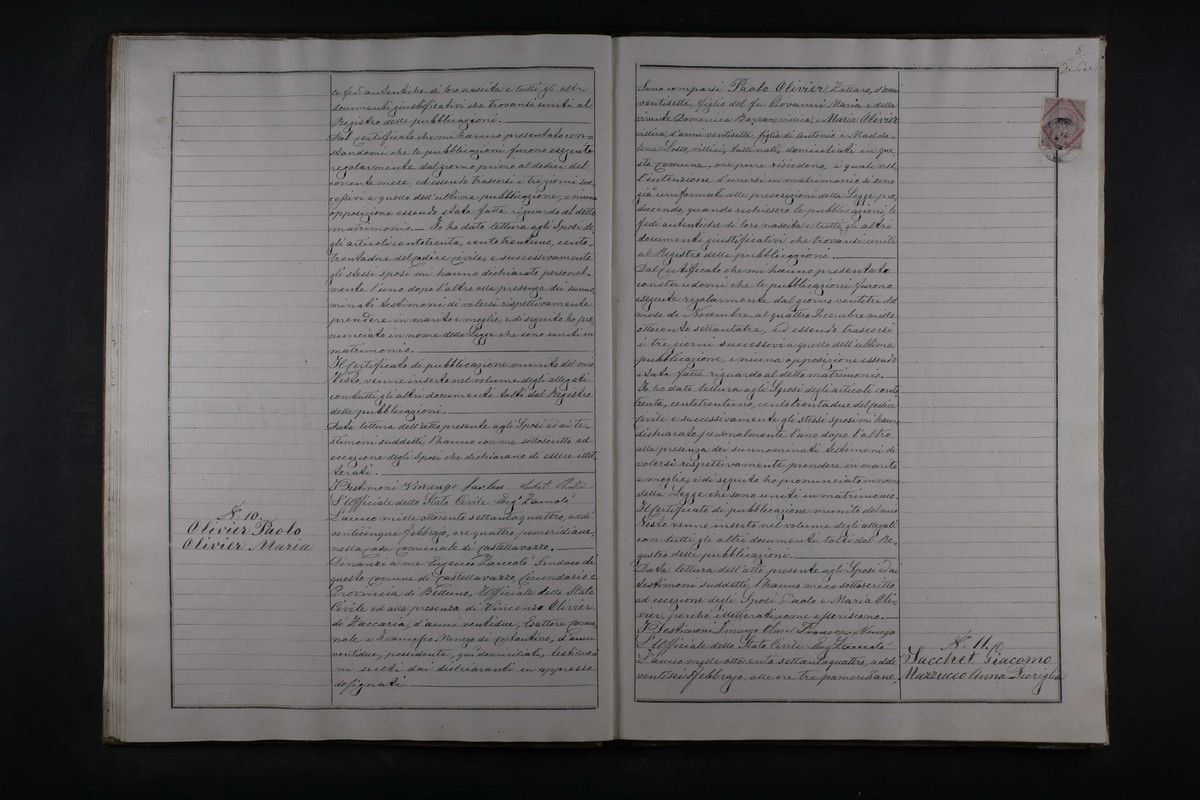 le fedi autentiche di loro nascita e tutti gli altri
documenti giustificativi che trovansi uniti al
Registro delle pubblicazioni.
Dal certificato che mi hanno presentato con-
standomi che le pubblicazioni furono eseguite
regolarmente dal giorno primo al dodici del
corrente mese, ed essendo trascorsi i tre giorni suc
cessivi a quello dell'ultima pubblicazione, e niuna
opposizione essendo stata fatta riguardo al detto
matrimonio. Io ho dato lettura agli Sposi de
gli articoli centotrenta, centotrentuno, cento-
trentadue del codice civile, e successivamente
gli stessi sposi mi hanno dichiarato personal-
mente l'uno dopo l'altro alla presenza dei sunno
minati testimoni di volersi rispettivamente
prendere in marito e moglie, e di seguito ho pro
nunciato in nome della Legge che sono uniti in
matrimonio.
Il certificato di pubblicazione munito del mio
Visto venne inserto nel volume degli allegati
con tutti gli altri documenti tolti dal Registro
delle pubblicazioni.
Data lettura dell'atto presente agli Sposi ed ai te-
stimoni suddetti, l'hanno con me sottoscritto ad
eccezione degli Sposi che dichiarano di essere illet
terati.
I Testimoni
L'Uffiziale dello Stato Civile Eug.o Zuccolò
N.° 10.
Olivier Paolo
Olivier Maria
L'anno mille ottocento settantaquattro, addi
venticinque Febbrajo, ore quattro pomeridiane,
nella casa Comunale di Castellavazzo.
Dinanzi a me Eugenio Zuccolò Sindaco di
questo Comune di Castellavazzo, Circondario e
Provincia di Belluno, Uffiziale dello Stato
Civile ed alla presenza di Vincenzo Olivier
di Zaccaria, d'anni ventidue, Esattore Comu
nale e Francesco Menego di Costantino, d'anni
ventidue, possidente, qui domiciliati, testimo
ni scelti dai dichiaranti in appresso
designati
8
Sono comparsi Paolo Olivier Zattaro, d'anni
ventisette, figlio del fu Giovanni Maria e della
vivente Domenica Bazzan, villica; e Maria Olivier
villica, d'anni ventisette, figlia di Antonio e Madda
lena Losso, villici, tutti nati, domiciliati in que
sto Comune, ove pure risiedono, i quali nel
l'intenzione d'unirsi in matrimonio si sono
già uniformati alle prescrizioni della Legge pro
ducendo, quando richiesero le pubblicazioni, le
fedi autentiche di loro nascita e tutti gli altri
documenti giustificativi che trovansi uniti
al Registro delle pubblicazioni.
Dal Certificato che mi hanno presentato
constandomi che le pubblicazioni furono
eseguite regolarmente dal giorno ventitre del
mese di Novembre al quattro Decembre mille
ottocento settantatre, ed essendo trascorsi
i tre giorni successivi a quello dell'ultima
pubblicazione, e niuna opposizione essendo
stata fatta riguardo al detto matrimonio.
Io ho dato lettura agli Sposi degli articoli cento
trenta, centotrentuno, centotrentadue del Codice
Civile e successivamente gli stessi sposi mi hanno
dichiarato personalmente l'uno dopo l'altro
alla presenza dei sunnominati testimoni di
volersi rispettivamente prendere in marito
e moglie, e di seguito ho pronunciato in nome
della Legge che sono uniti in matrimonio.
Il Certificato di pubblicazione munito del mio
Visto venne inserto nel volume degli allegati
con tutti gli altri documenti tolti dal Re-
gistro delle pubblicazioni.
Data lettura dell'atto presente agli Sposi ed ai
testimoni suddetti, l'hanno meco sottoscritto
ad eccezione degli Sposi Paolo e Maria Oli-
vier, perchè illetterati, come asseriscono.
I Testimoni Francesco Menego
L'Uffiziale dello Stato Civile Eug.o Zuccolò
N.° 11.
Sacchet Giacomo
Mazzucco Anna Dioriglia
L'anno mille ottocento settantaquattro, addi
ventisei Febbrajo, alle ore tre pomeridiane,